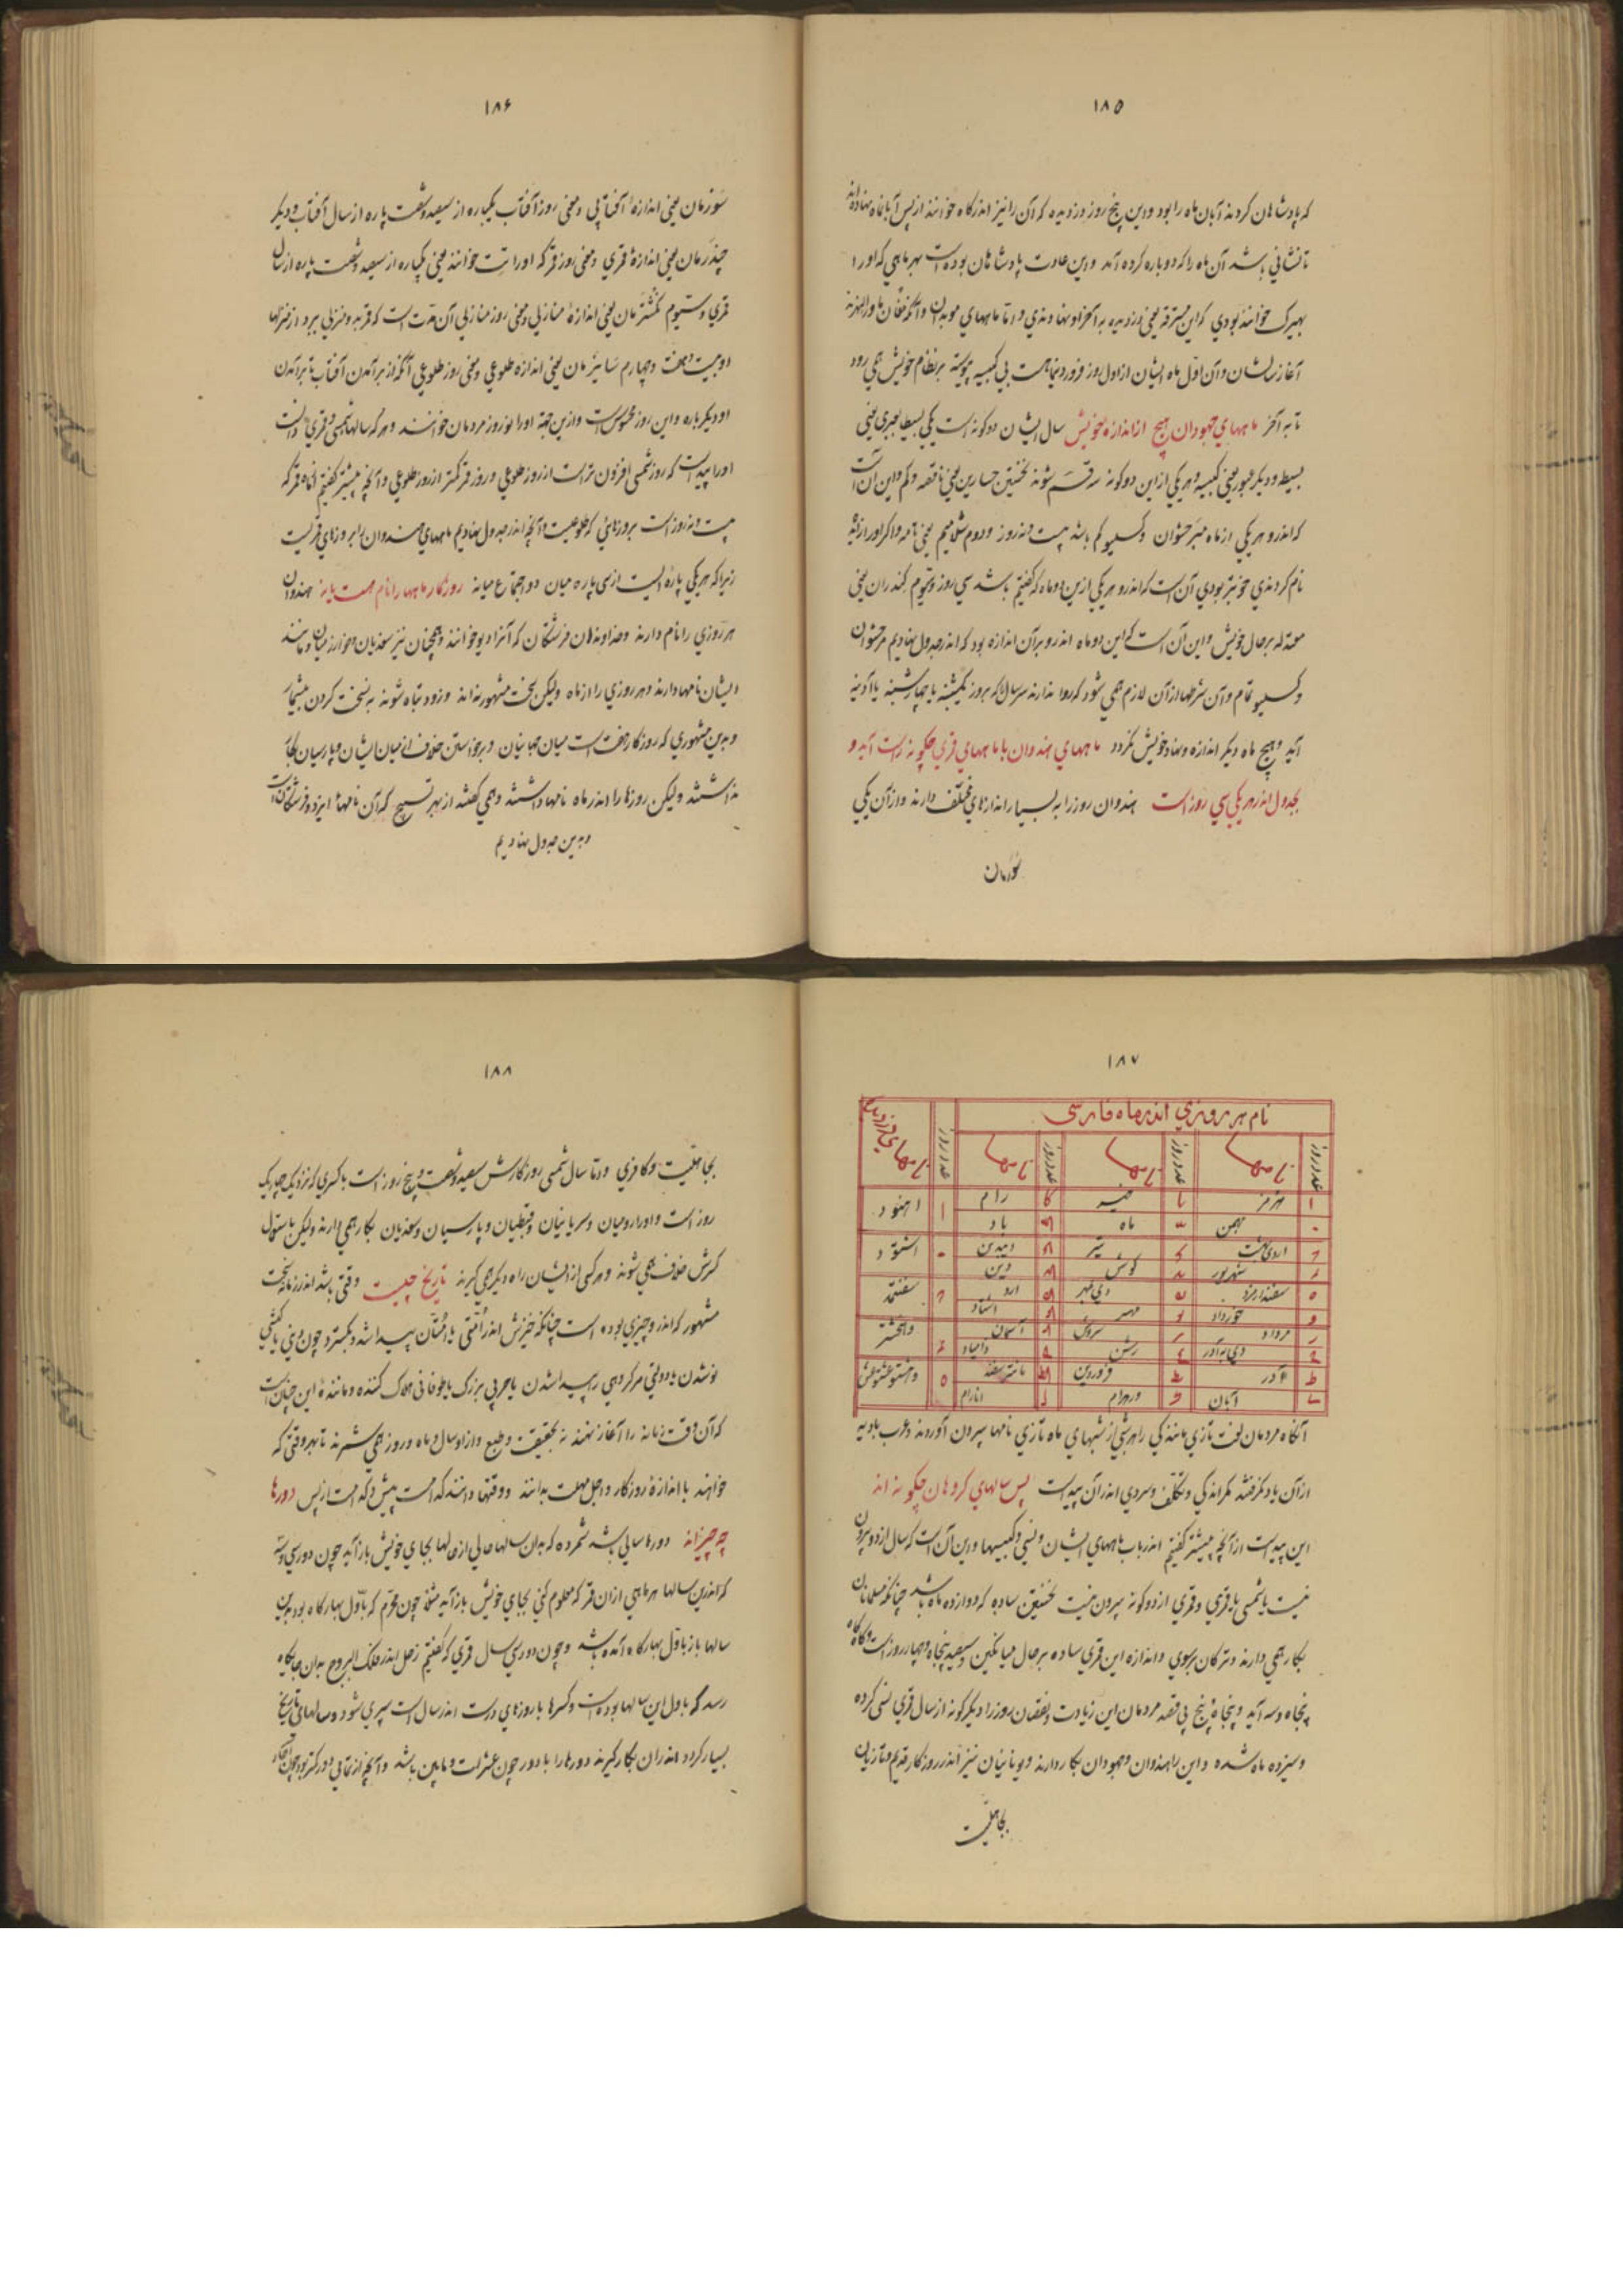 ۱۸۵
که پادشاهان کردند آبان ماه را بود و این پنج روز دزدیده که آن را نیز اندرگاه خوانند از پس آبانماه نهاده‌اند
تا نشانی باشد آن ماه را که دوباره کرده آمد و این عادت پادشاهان بوده است بهر ماهی که او را
بهیزک خوانند بودی که این مسترقه یعنی دزدیده به آخر او نهادندی و اما ماههای موبدان و آنکه مغان ماوراءالنهرند
آغاز سالشان و آن اول ماه ایشان از اول روز فروردینماهست بی کبیسه پیوسته بر نظام خویش همی رود
تا به آخر ماههای جهودان هیچ از اندازه خویش سال ایشان دو گونه است یکی بسیط بعبری یعنی
بسیط و دیگر عبور یعنی کبیسه و هر یکی از این دو گونه سه قسم شوند نخستین حسارین یعنی ناقصه و کم و این آن است
که اندرو هر یکی از ماه مرحشوان و کسلیو کم باشد بیست و نه روز و دوم شلامیم یعنی تامه و اگر او را زائد
نام کردندی خوبتر بودی آن است که اندرو هر یکی ازین دو ماه که گفتیم باشد سی روز و سیوم کسدران یعنی
معتدله بر حال خویش و این آن است که این دو ماه اندرو برآن اندازه بود که اندر جدول نهادیم مرحشوان
و کسلیو تمام و آن شرطها از آن لازم همی شود که روا ندارند سر سال که بروز یکشنبه یا چهارشنبه یا آدینه
آید و هیچ ماه دیگر اندازه و نهاد خویش نگردد ماههای هندوان با ماههای قمری چگونه راست آید و
بجدول اندر هر یکی سی روز است هندوان روز را به بسیار اندازهای مختلف دارند و از آن یکی
سَوَرمان
۱۸۶
سَورمان یعنی اندازهٔ آفتابی و معنی روز آفتاب یکپاره از سیصد و شصت پاره از سال آفتاب و دیگر
چندَرمان یعنی اندازهٔ قمری و معنی روز قمر که او را تِت خوانند یعنی یکپاره از سیصد و شصت پاره از سال
قمری و سیوم نکشترمان یعنی اندازهٔ منازلی و معنی روز منازلی آن مدت است که قمر بدو منزلی ببرد از منزلها
او بیست و هفت و چهارم سَابنرمان یعنی اندازه طلوعی و معنی روز طلوعی آنکه از برآمدن آفتاب تا برآمدن
او دیگر باره و این روز محسوس است و ازین جهة او را نوروز مردمان خوانند و هر که سالها شمسی و قمری دانست
او را پیداست که روز شمسی افزون تر است از روز طلوعی و روز قمر کمتر از روز طلوعی و آنچه پیشتر گفتیم که ماه قمر که
بیست و نه روز است بروزهائی که طلوعیست و آنچه اندر جدول نهادیم ماههای هندوان را بروزهای قمریست
زیرا که هر یکی پاره ایست از سی پاره میان دو اجتماع میانه روزگار ماهها را نام هست یا نه هندوان
هر روزی را نام دارند و خداوندان فرشتگان که آنرا دیو خوانند و همچنان نیز سغدیان و خوارزمیان و مانند
ایشان نامها دارند و هر روزی را از ماه ولیکن سخت مشهور نه اند و زود تباه شوند به نسخت کردن بیشتر
و بدین مشهوری که روزگار هفت است میان جهانیان و برخواستن خلاف از میان ایشان و پارسیان بکار
نداشتند ولیکن روزها را اندر ماه نامها داشتند و همی گفتند از بهر تسبیح که آن نامها ایزد و فرشتگانست
و بدین جدول نهادیم
۱۸۷
نام هر روزی اندر ماه فارسی
عدد روز نامها عدد روز نامها عدد روز نامها عدد روز نامهای اندرگاه
ا هرمز یا خیر کا رام ا اهنود
ب بهمن یب ماه کب باد
ج اردیبهشت یج تیر کج دیبدین ب اشتود
د شهریور ید گوش کد دین
ه سفندارمذ یه دی بمهر که ارد ج سفنتمد
و خورداد یو مهر کو اشتاد
ز مرداد یز سروش کز آسمان د واهخشتر
ح دی به آذر یح رشن کح دامیاد
ط آذر یط فروردین کط مانتر سفند ه وهشتوعشتوش
ی آبان ک ورهرام ل انارام
آنگاه مردمان لغت تازی مانندگی را هر شبی از شبهای ماه تازی نامها بیرون آوردند و عرب بادیه
از آن یاد نگرفتند مگر اندکی و تکلف و سردی اندر آن پیداست پس سالهای گروهان چگونه اند
این پیداست از آنچه پیشتر گفتیم اندر باب ماههای ایشان و نسی و کبیسها و این آن است که سال از دو بیرون
نیست یا شمسی یا قمری و قمری از دو گونه بیرون نیست نخستین ساده که دوازده ماه باشد چنانکه مسلمانان
بکار همی دارند و ترکان بربوی و اندازه این قمری ساده بر حال میانگین سیصد و پنجاه و چهار روز است و گاه گاه
پنجاه و سه آید و پنجاه و پنج بی قصد مردمان این زیادت و نقصان روز را دیگر گونه از سال قمری نسی کرده
و سیزده ماه شده و این را هندوان و جهودان بکار دارند و یونانیان نیز اندر روزگار قدیم و تازیان
بجاهلیت
۱۸۸
بجاهلیت و کافری و اما سال شمسی روزگارش سیصد و شصت و پنج روز است با کسری که نزدیک چاریک
روز است و او را رومیان و سریانیان و قبطیان و پارسیان و سغدیان بکار همی دارند ولیکن باستعمال
کسرش خلاف همی شوند و هر کسی از ایشان راه دیگر همی گیرند تاریخ چیست وقتی باشد اندر زمانه سخت
مشهور که اندرو چیزی بوده است چنانکه خبرش اندر اُمّتی یا اُمّتان پیدا شد و بگسترد چون دینی یا کیشی
نوشدن یا دولتی مر گروهی را پیدا شدن یا حربی بزرگ یا طوفانی هلاک کننده و مانندهٔ این چنانست
که آن وقت زمانه را آغاز نهند نه بحقیقت و طبع و از او سال و ماه و روز همی شمرند تا بهر وقتی که
خواهند تا اندازهٔ روزگار و اجل مهلت بدانند و وقتها دانند که است پیش و که است از پس دورها
چه چیزاند دورها سالی باشد شمرده که بدان سالها حالی از حالها بجای خویش باز آید چون دور سی و سه
که اندرین سالها هر ماهی از آن قمر که معلوم کنی بجای خویش باز آید مثلا چون محرم که باول بهارگاه بود بدین
سالها باز باول بهارگاه آمده باشد و چون دور سی سال قمری که گفتیم زحل اندر فلک البروج بدان جایگاه
رسد که باول این سالها بوده است و کسرها با روزهای درست اندر سال است سپری شود و سالهای تاریخ
بسیار گردد اندران بکار گیرند دورها را با دور چون عشرات و مابین باشد و آنچه از تمامی دور کمتر بود چون آحاد